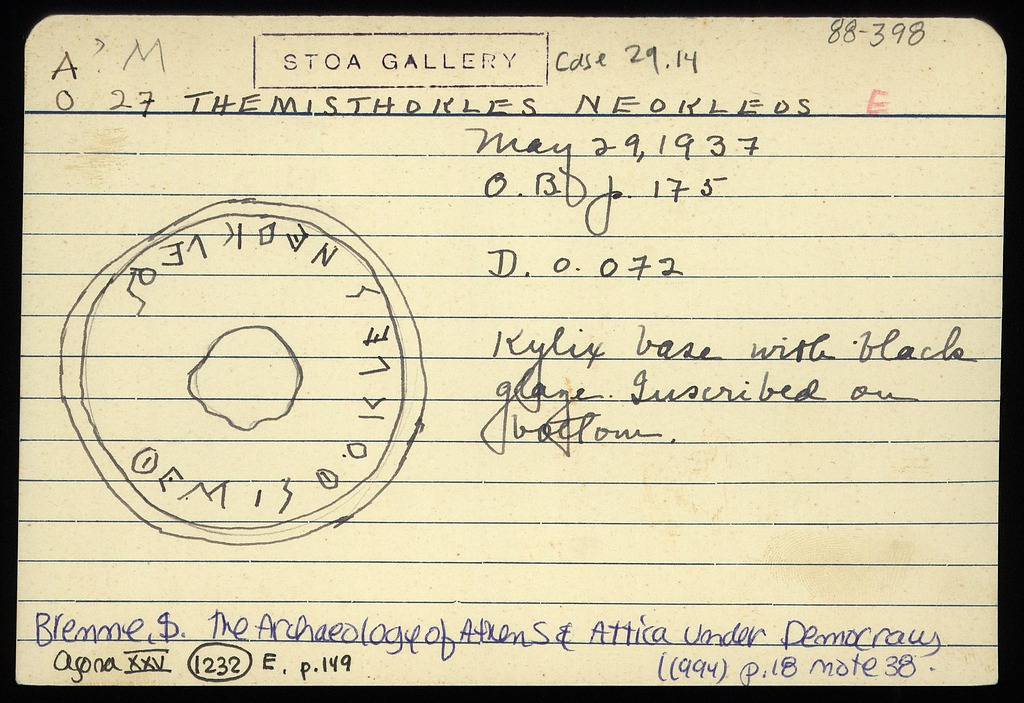 88-398
A ? M
STOA GALLERY Case 29.14
O 27 THEMISTHOKLES NEOKLEOS E
May 29, 1937
O.B p. 175
D. 0.072
Kylix base with black
glaze. Inscribed on
bottom.
Brenne, S. The Archaeology of Athens & Attica under Democracy
Agora XXV 1232 E. p.149 (1994) p.18 note 38.